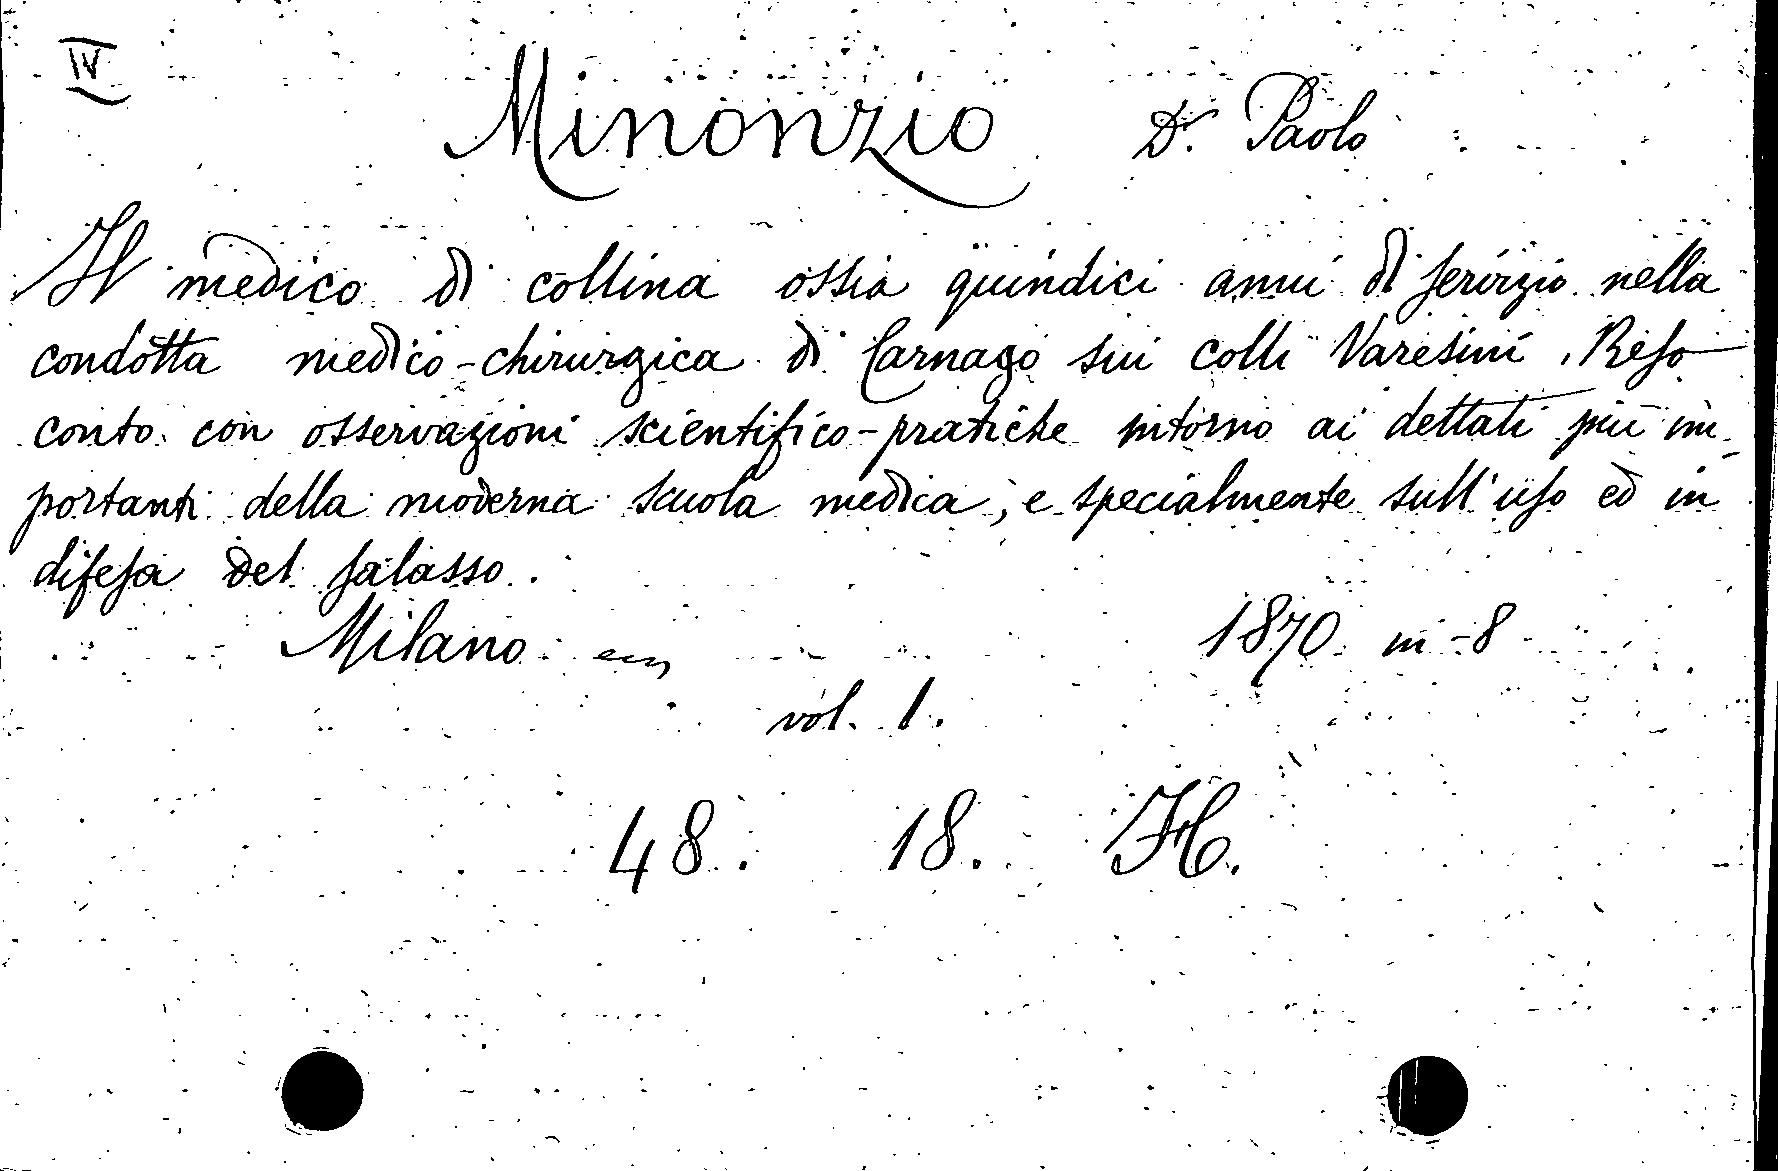 IV
Minonzio Dr. Paolo
Il medico di collina ossia quindici anni di servizio nella
condotta medico-chirurgica di Carnago sui colli Varesini. Reso
conto con osservazioni scientifico-pratiche intorno ai dettati più im-
portanti della moderna scuola medica, e specialmente sull'uso ed in
difesa del salasso.
Milano 1870 in-8
vol. 1.
48. 18. H.